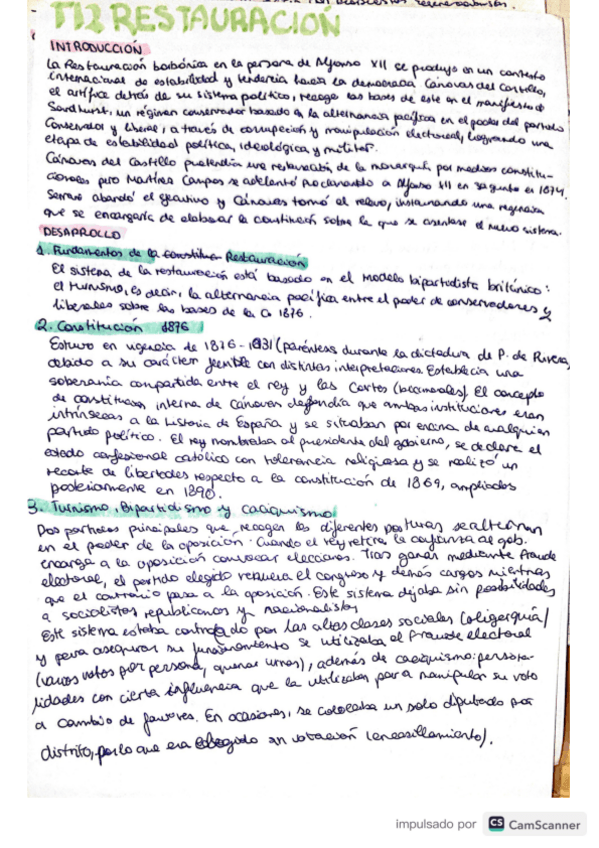 T12 RESTAURACIÓN
INTRODUCCIÓN
La Restauración borbónica en la persona de Alfonso XII se produjo en un contexto
internacional de estabilidad y tendencia hacia la democracia. Cánovas del Castillo,
el artífice detrás de su sistema político, recoge las bases de este en el manifiesto de
Sandhurst, un régimen conservador basado en la alternancia pacífica en el poder del partido
Conservador y liberal, a través de corrupción y manipulación electoral, logrando una
etapa de estabilidad política, ideológica y militar.
Cánovas del Castillo pretendía una restauración de la monarquía por medios constitu-
cionales pero Martínez Campos se adelantó proclamando a Alfonso XII en Sagunto en 1874.
Serrano abandó el ejecutivo y Cánovas tomó el relevo, instaurando una regencia
que se encargaría de elaborar la constitución sobre la que se asentase el nuevo sistema.
DESARROLLO
1. Fundamentos de la constitu Restauración
El sistema de la restauración está basado en el modelo bipartidista británico:
el turnismo, es decir, la alternancia pacífica entre el poder de conservadores y
liberales sobre las bases de la Co 1876.
2. Constitución 1876
Estuvo en vigencia de 1876-1931 (paréntesis durante la dictadura de P. de Rivera,
debido a su carácter flexible con distintas interpretaciones. Establecía una
soberanía compartida entre el rey y las Cortes (bicamerales). El concepto
de constitución interna de Cánovas defendía que ambas instituciones eran
intrínsecas a la historia de España y se situaban por encima de cualquier
partido político. El rey nombraba al presidente del gobierno, se declara el
estado confesional católico con tolerancia religiosa y se realizó un
recorte de libertades respecto a la constitución de 1869, ampliados
posteriormente en 1890.
3. Turnismo, Bipartidismo y caciquismo
Dos partidos principales que recogen las diferentes posturas se alternan
en el poder de la oposición. Cuando el rey retira la confianza al gob.
encarga a la oposición convocar elecciones. Tras ganar mediante fraude
electoral, el partido elegido renueva el congreso y demás cargos mientras
que el contrario pasa a la oposición. Este sistema dejaba sin posibilidades
a socialistas, republicanos y nacionalistas
Este sistema estaba controlado por las altas clases sociales (oligarquía)
y para asegurar su funcionamiento se utilizaba el fraude electoral
(varios votos por persona, quemar urnas), además de caciquismo: persona-
lidades con cierta influencia que la utilizaban para manipular su voto
a cambio de favores. En ocasiones, se colocaba un solo diputado por
distrito, por lo que era elegido sin votación (encasillamiento).
impulsado por CS CamScanner